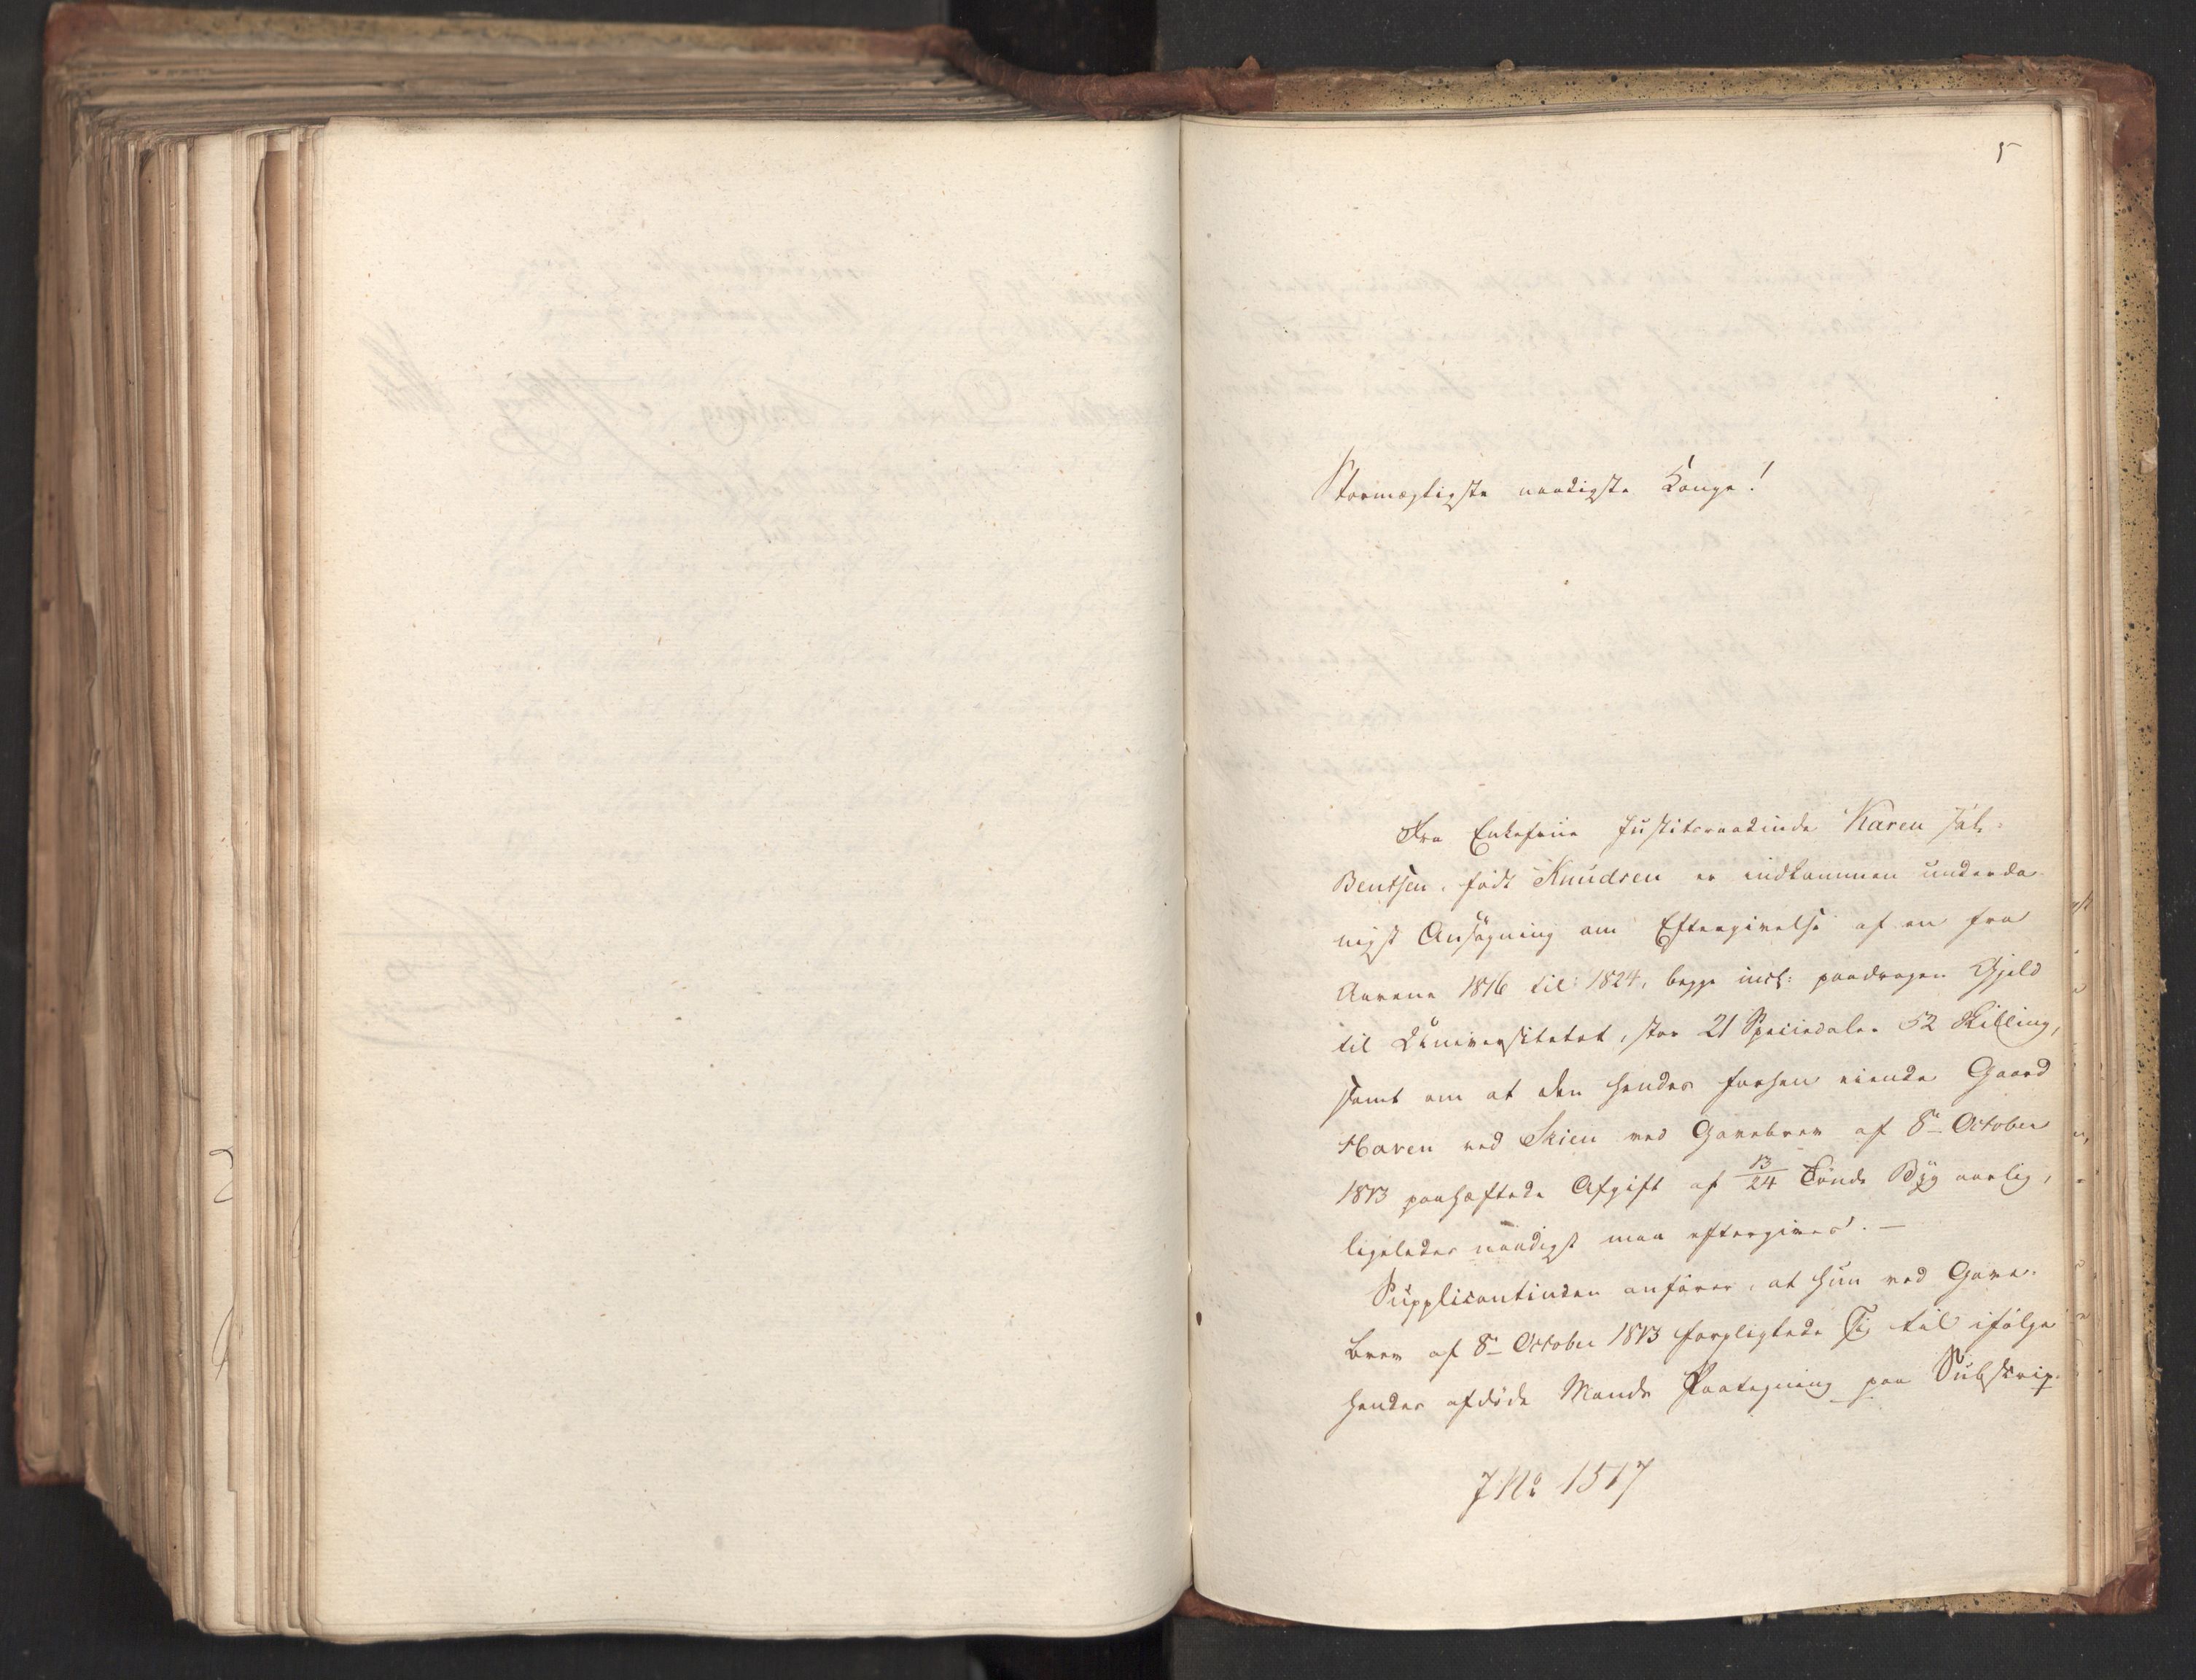 5
Stormægtigste naadigste Konge!
Fra Enkefrue Justitsraadinde Karen sal:
Bentsen, født Knudsen er indkommen underda-
nigst Ansøgning om Eftergivelse af en fra
Aarene 1816 til 1824, begge incl: paadragen Gjeld
til Universitetet, stor 21 Speciedaler 52 Skilling,
samt om at den hendes forhen eiende Gaard
Haven ved Skien ved Gavebrev af 8de October
1813 paahæftede Afgift af 13/24 Tønde Byg aarlig,
ligeledes naadigst maa eftergives. —
Supplicantinden anfører, at hun ved Gave-
brev af 8de October 1813 forpligtede sig til ifølge
hendes afdøde Mands Paategning paa Subskrip-
J No 1517